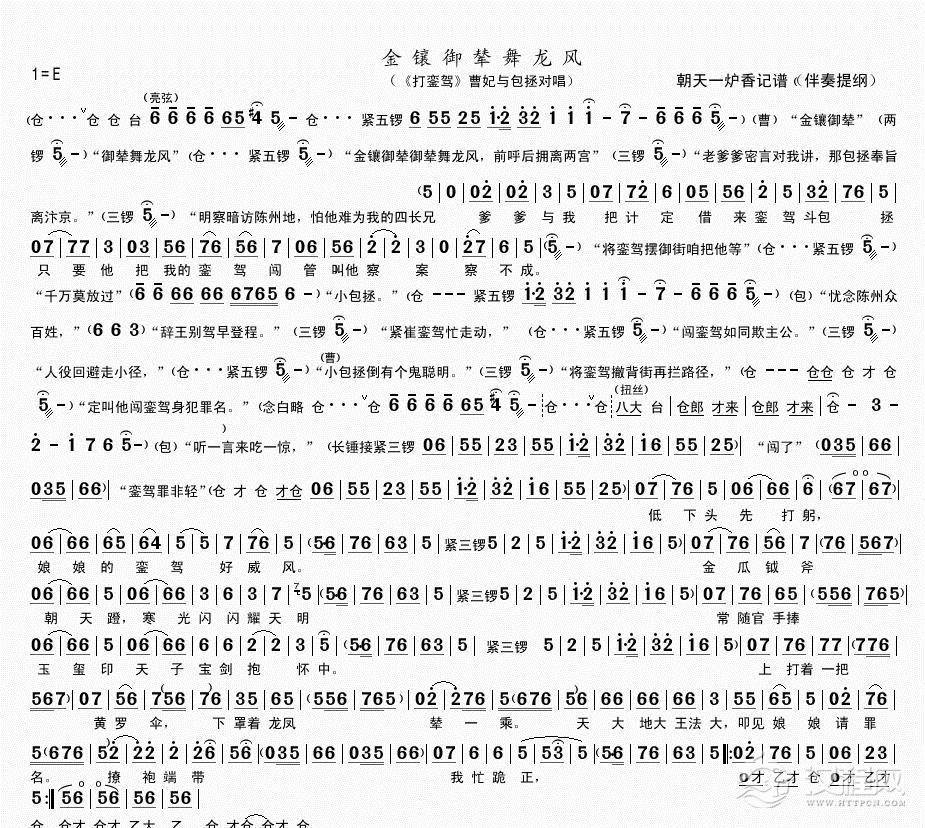 金镶御辇舞龙风
1=E （《打銮驾》曹妃与包拯对唱） 朝天一炉香记谱（伴奏提纲）
（亮弦）
(仓···ˇ仓 仓 台 6 6 6 6 65 #4 5 - 仓··· 紧五锣 6 55 25 1·2 32 1 1 1 - 7 - 6 6 6 5 -)(曹)“金镶御辇”(两
锣 5 -)“御辇舞龙风”(仓···紧五锣 5 -)“金镶御辇御辇舞龙风，前呼后拥离两宫”(三锣 5 -)“老爹爹密言对我讲，那包拯奉旨
(5|0|02|02|5|07|72|6|05|2|5|32|76|5|
离汴京。”(三锣 5 -)“明察暗访陈州地，怕他难为我的四长兄 爹 爹 与 我 把 计 定 借 来 銮 驾 斗 包 拯
07|77|3|03|56|76|56|7|06|56|2|2|3|0|27|6|5|(5 -)“将銮驾摆御街咱把他等”(仓···紧五锣 5 -)
只 要 他 把 我的 銮 驾 闯 管 叫他 察 案 察 不 成。
“千万莫放过”(6 6 66 66 6765 6 -)“小包拯。”(仓 --- 紧五锣 1·2 32 1 1 1 - 7 - 6 6 6 5 -)(包)“忧念陈州众
百姓，”(6 6 3)“辞王别驾早登程。”(三锣 5 -)“紧崔銮驾忙走动，”(仓···紧五锣 5 -)“闯銮驾如同欺主公。”(三锣 5 -)
（曹）
“人役回避走小径，”(仓···紧五锣 5 -)“小包拯倒有个鬼聪明。”(三锣 5 -)“将銮驾撤背街再拦路径，”(仓 --- 仓仓 仓 才 仓
（扭丝）
5 -)“定叫他闯銮驾身犯罪名。”(念白略 仓···ˇ仓 6 6 6 6 65 #4 5 - 仓···ˇ仓 八大 台|仓郎 才来|仓郎 才来|仓 - 3 -
2 - 1 7 6 5 -)(包)“听一言来吃一惊，”(长锤接紧三锣 06|55|23|55|1·2|32|16|55|25)|“闯了”(035|66|
035|66)|“銮驾罪非轻”(仓 才 仓 才仓 06|55|23|55|1·2|32|16|55|25)|07|76|5|06|66|6|(67|67)|
低 下 头 先 打 躬，
06|66|65|64|5|5|7|76|5|(5·6|76|63|5|紧三锣 5|2|5|1·2|32|16|5)|07|76|56|7|(76|567)|
娘 娘 的 銮 驾 好 威 风。 金 瓜 钺 斧
06|66|5|02|63|3|6|2|76|5|(5·6|76|63|5|紧三锣 5|2|5|1·2|32|16|5)|07|76|65|(556|765)|
朝 天 蹬，寒 光 闪 闪 耀 天 明 常 随官 手捧
06|66|5|56|76|66|02|2|3|5|(5·6|76|63|5|紧三锣 5|2|5|1·2|32|16|5)|07|76|77|(776|
玉 玺 印 天 子 宝 剑 抱 怀 中。 上 打着 一把
567)|07|56|756|76|35|65|(556|765)|02|276|5(676|56|76|66|66|3)|55|65|5|02|76|
黄 罗 伞， 下 罩着 龙凤 辇 一 乘。 天 大 地大 王法 大，叩见 娘 娘 请 罪
5(676|52|22|2|26|56|(035|66|035|66)|66|5|535|5|(5·6|76|63|5|:02|76|5|06|23|
名。 撩 袍 端 带 我 忙 跪 正， 0才 乙才 仓 0才 乙才
5:|56|56|56|56|
仓 仓才 仓才 乙大 乙 仓 才仓 仓才 仓
汉程网
WWW.HTTPCN.COM